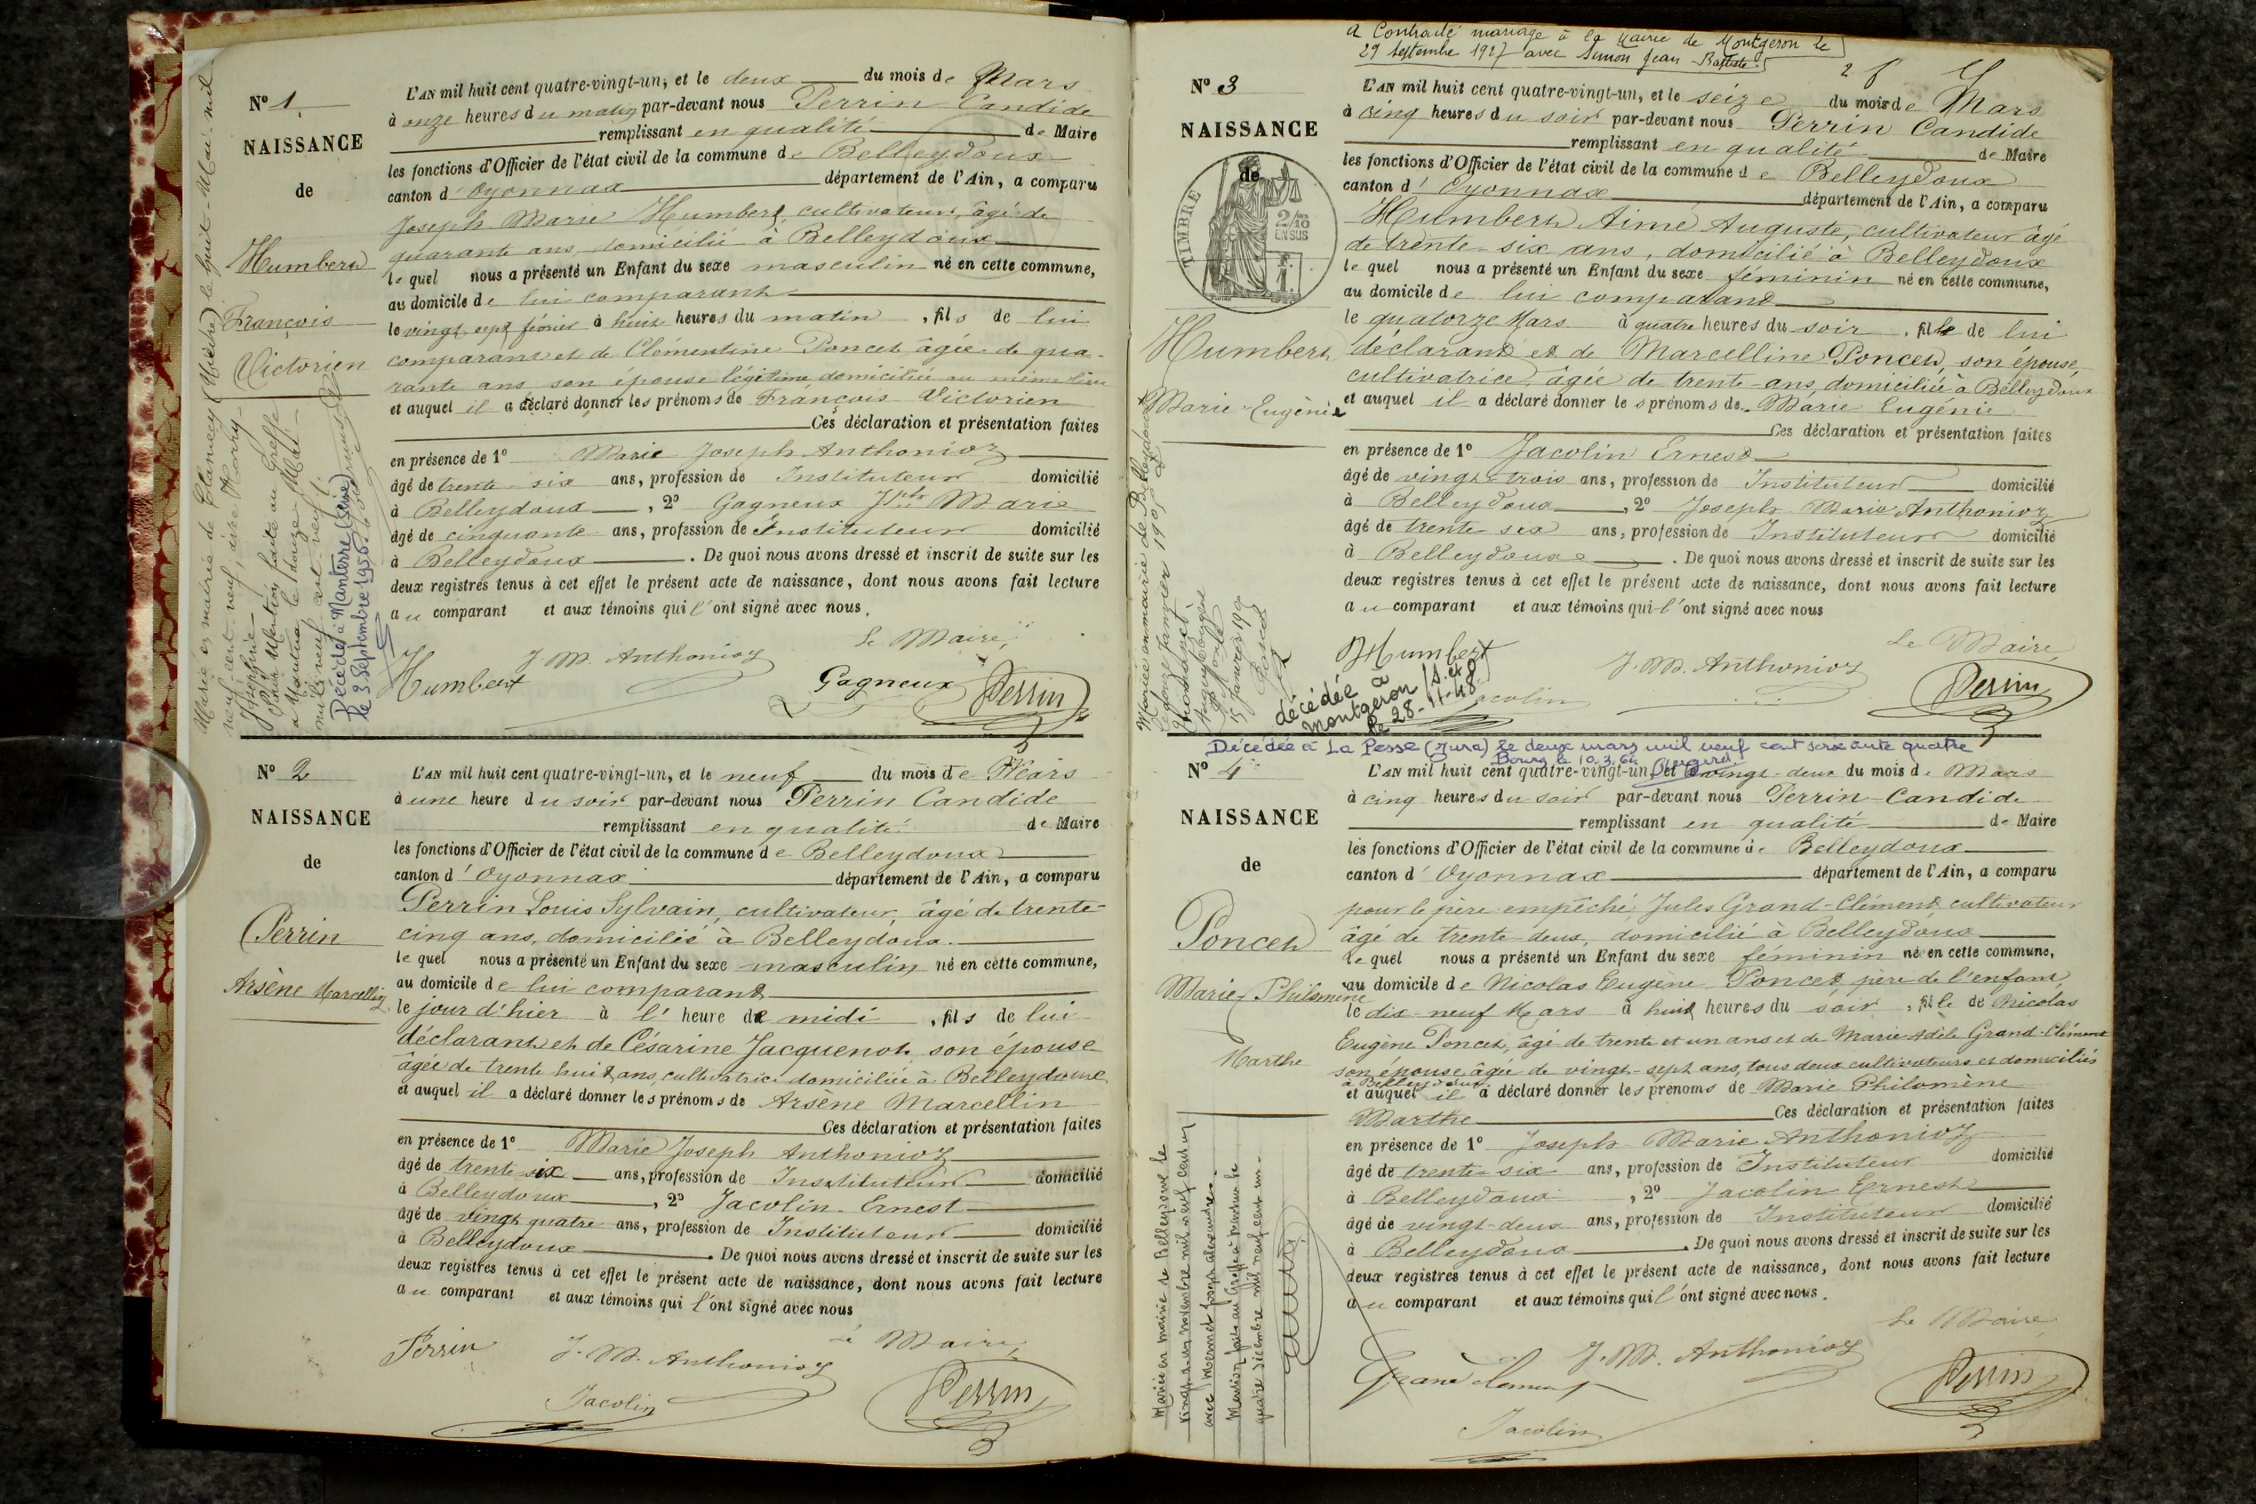 N° 1
NAISSANCE
de
Humbert
François
Victorien
L'AN mil huit cent quatre-vingt-un, et le deux du mois de Mars
à onze heures du matin par-devant nous Perrin Candide
remplissant en qualité de Maire
les fonctions d'Officier de l'état civil de la commune de Belleydoux
canton d'Oyonnax département de l'Ain, a comparu
Joseph Marie Humbert, cultivateur, âgé de
quarante ans, domicilié à Belleydoux
lequel nous a présenté un Enfant du sexe masculin né en cette commune,
au domicile de lui comparant
le vingt sept février à huit heures du matin, fils de lui
comparant et de Clémentine Poncet âgée de qua-
rante ans son épouse légitime domiciliée au même lieu
et auquel il a déclaré donner les prénoms de François Victorien
Ces déclaration et présentation faites
en présence de 1° Marie Joseph Anthonioz
âgé de trente six ans, profession de Instituteur domicilié
à Belleydoux, 2° Gagneux Jph Marie
âgé de cinquante ans, profession de Instituteur domicilié
à Belleydoux. De quoi nous avons dressé et inscrit de suite sur les
deux registres tenus à cet effet le présent acte de naissance, dont nous avons fait lecture
au comparant et aux témoins qui l'ont signé avec nous.
Le Maire,
Humbert J. M. Anthonioz Gagneux Perrin
Marié en mairie de Clancey le huit Mai mil
neuf cent neuf, avec
Joséphine
Pour Mention faite au Greffe
à Nantua le treize Mai
mil neuf cent neuf.
Décédé à Nanterre (Seine)
le 3 Septembre 1956
N° 2
NAISSANCE
de
Perrin
Arsène Marcellin
L'AN mil huit cent quatre-vingt-un, et le neuf du mois de Mars
à une heure du soir par-devant nous Perrin Candide
remplissant en qualité de Maire
les fonctions d'Officier de l'état civil de la commune de Belleydoux
canton d'Oyonnax département de l'Ain, a comparu
Perrin Louis Sylvain, cultivateur, âgé de trente-
cinq ans, domicilié à Belleydoux.
lequel nous a présenté un Enfant du sexe masculin né en cette commune,
au domicile de lui comparant
le jour d'hier à l'heure de midi, fils de lui
déclarant et de Césarine Jacquenot, son épouse
âgée de trente huit ans, cultivatrice domiciliée à Belleydoux
et auquel il a déclaré donner les prénoms de Arsène Marcellin
Ces déclaration et présentation faites
en présence de 1° Marie Joseph Anthonioz
âgé de trente-six ans, profession de Instituteur domicilié
à Belleydoux, 2° Jacolin Ernest
âgé de vingt quatre ans, profession de Instituteur domicilié
à Belleydoux. De quoi nous avons dressé et inscrit de suite sur les
deux registres tenus à cet effet le présent acte de naissance, dont nous avons fait lecture
au comparant et aux témoins qui l'ont signé avec nous
Le Maire,
Perrin J. M. Anthonioz Perrin
Jacolin
a Contracté mariage à la Mairie de Montgeron le
29 Septembre 1927 avec Simon Jean Baptiste.
N° 3
NAISSANCE
de
TIMBRE
2/10
EN SUS
Humbert
Marie Eugénie
L'AN mil huit cent quatre-vingt-un, et le seize du mois de Mars
à cinq heures du soir par-devant nous Perrin Candide
remplissant en qualité de Maire
les fonctions d'Officier de l'état civil de la commune de Belleydoux
canton d'Oyonnax département de l'Ain, a comparu
Humbert Aimé Auguste, cultivateur âgé
de trente-six ans, domicilié à Belleydoux
lequel nous a présenté un Enfant du sexe féminin né en cette commune,
au domicile de lui comparant
le quatorze Mars à quatre heures du soir, fille de lui
déclarant et de Marcelline Poncet, son épouse,
cultivatrice, âgée de trente-ans, domiciliée à Belleydoux
et auquel il a déclaré donner les prénoms de Marie Eugénie
Ces déclaration et présentation faites
en présence de 1° Jacolin Ernest
âgé de vingt-trois ans, profession de Instituteur domicilié
à Belleydoux, 2° Joseph Marie Anthonioz
âgé de trente six ans, profession de Instituteur domicilié
à Belleydoux. De quoi nous avons dressé et inscrit de suite sur les
deux registres tenus à cet effet le présent acte de naissance, dont nous avons fait lecture
au comparant et aux témoins qui l'ont signé avec nous
Le Maire,
Humbert J. M. Anthonioz Perrin
Jacolin
Mariée en mairie de Belleydoux
le onze Janvier 190
décédée à
Montgeron (S. et O.)
le 28-11-48
Décédée à La Pesse (Jura) le deux mars mil neuf cent soixante quatre
Bourg le 10.3.64
N° 4
NAISSANCE
de
Poncet
Marie Philomène
Marthe
L'AN mil huit cent quatre-vingt-un, et le vingt-deux du mois de Mars
à cinq heures du soir par-devant nous Perrin Candide
remplissant en qualité de Maire
les fonctions d'Officier de l'état civil de la commune de Belleydoux
canton d'Oyonnax département de l'Ain, a comparu
pour le père empêché, Jules Grand-Clément, cultivateur
âgé de trente-deux, domicilié à Belleydoux
lequel nous a présenté un Enfant du sexe féminin né en cette commune,
au domicile de Nicolas Eugène Poncet père de l'enfant
le dix-neuf Mars à huit heures du soir, fille de Nicolas
Eugène Poncet, âgé de trente et un ans et de Marie Adèle Grand-Clément
son épouse âgée de vingt-sept ans, tous deux cultivateurs et domiciliés
à Belleydoux
et auquel il a déclaré donner les prénoms de Marie Philomène
Marthe Ces déclaration et présentation faites
en présence de 1° Joseph Marie Anthonioz
âgé de trente-six ans, profession de Instituteur domicilié
à Belleydoux, 2° Jacolin Ernest
âgé de vingt-deux ans, profession de Instituteur domicilié
à Belleydoux. De quoi nous avons dressé et inscrit de suite sur les
deux registres tenus à cet effet le présent acte de naissance, dont nous avons fait lecture
au comparant et aux témoins qui l'ont signé avec nous.
Le Maire
Grand Clément J. M. Anthonioz Perrin
Jacolin
Mariée en mairie de Belleydoux le
vingt-un novembre mil neuf cent un
avec Mermet Joseph Alexandre.
Mention faite au Greffe à Nantua le
quatre décembre mil neuf cent un.